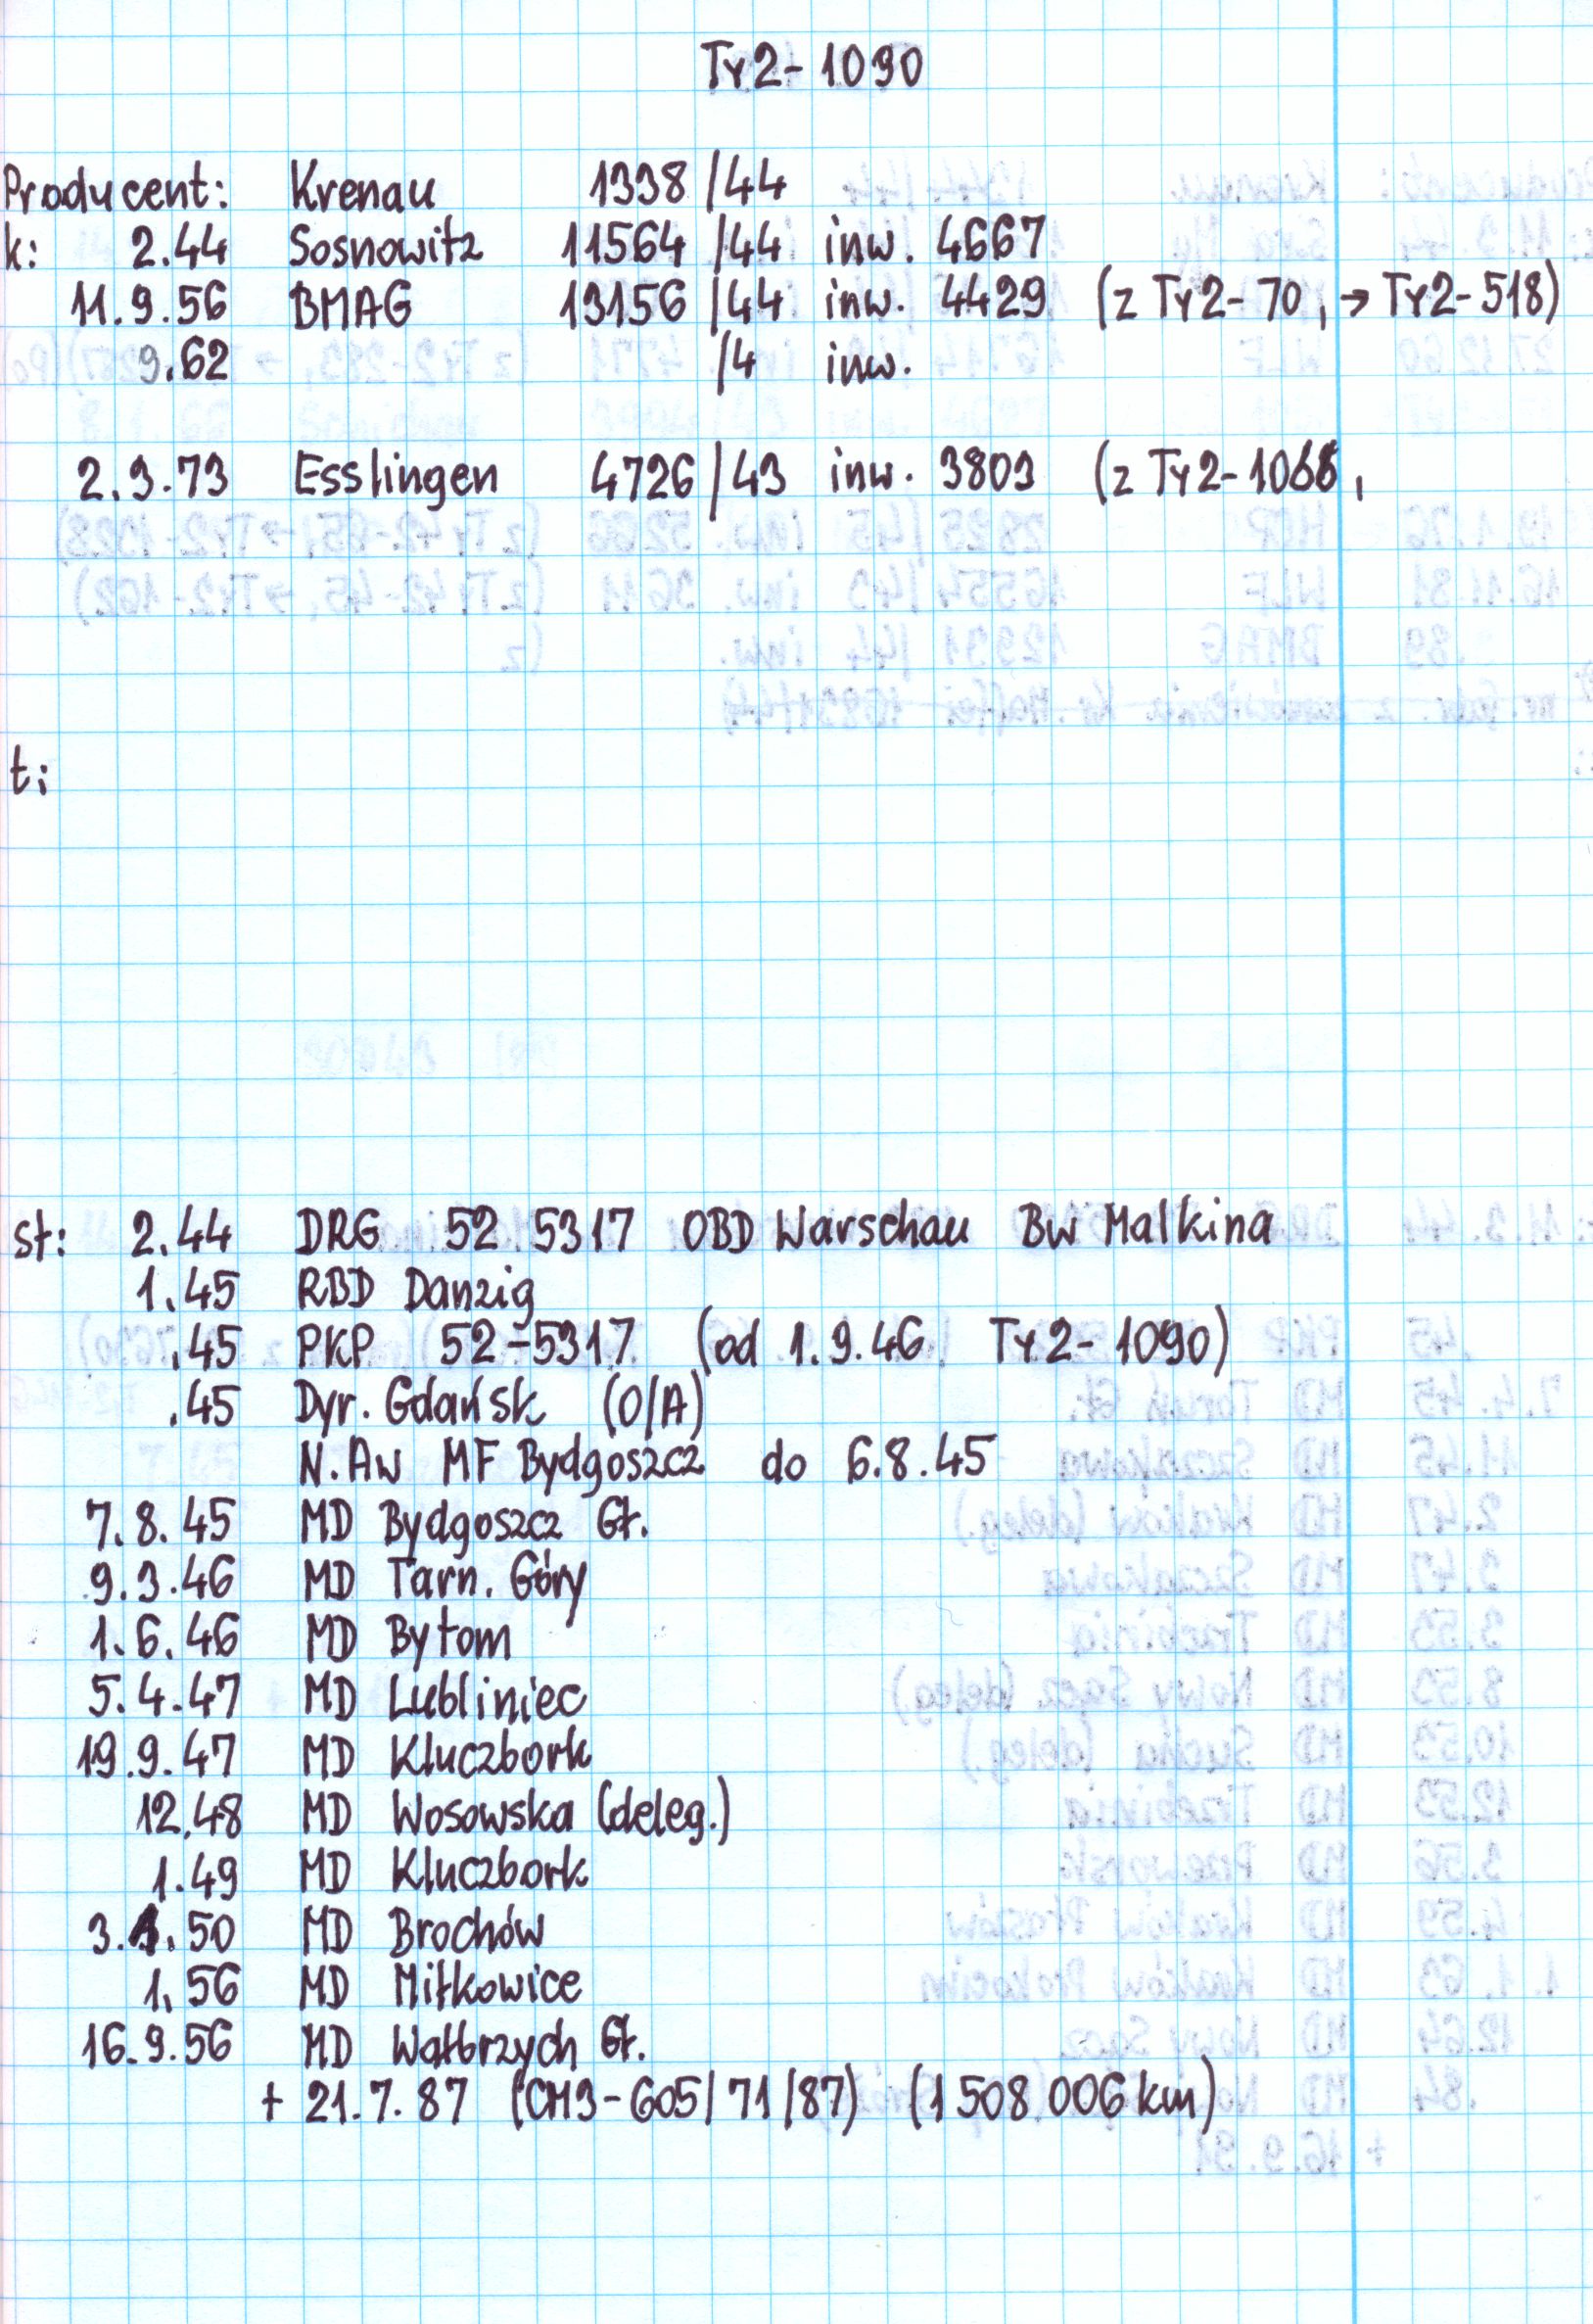 Ty2-1090
Producent: Krenau 1338/44
k: 2.44 Sosnowitz 11564/44 inw. 4667
11.9.56 BMAG 13156/44 inw. 4429 (z Ty2-70, → Ty2-518)
9.62 /4 inw.
2.9.73 Esslingen 4726/43 inw. 3809 (z Ty2-1068,
t:
st: 2.44 DRG 52 5317 OBD Warschau Bw Malkina
1.45 RBD Danzig
.45 PKP 52-5317 (od 1.9.46 Ty2-1090)
.45 Dyr. Gdańsk (O/A)
N.Aw MF Bydgoszcz do 6.8.45
7.8.45 MD Bydgoszcz Gł.
9.3.46 MD Tarn. Góry
1.6.46 MD Bytom
5.4.47 MD Lubliniec
19.9.47 MD Kluczbork
12.48 MD Wosowska (deleg.)
1.49 MD Kluczbork
3.1.50 MD Brochów
1.56 MD Miłkowice
16.9.56 MD Wałbrzych Gł.
+ 21.7.87 (CM3-605/71/87) (1 508 006 km)